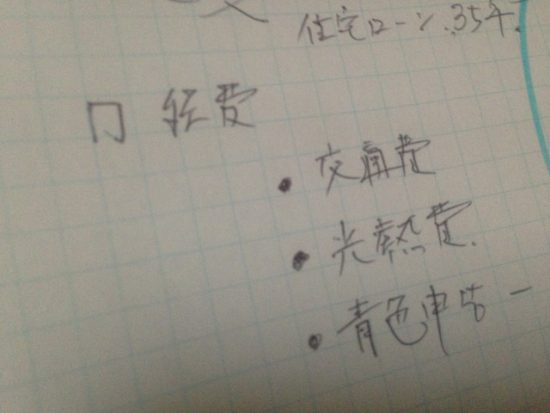 住宅ローン.35年.
□ 経費
• 交通費
• 光熱費.
• 青色申告ー